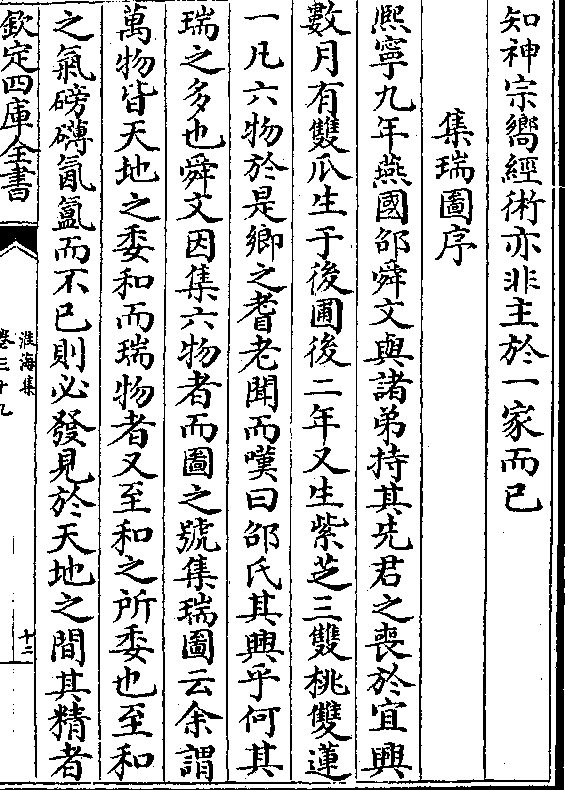 知神宗嚮經術亦非主於一家而已
集瑞圖序
熈寧九年燕國邵舜文與諸弟持其先君之喪於宜興
數月有雙瓜生于後圃後二年又生紫芝三雙桃雙蓮
一凡六物於是鄉之耆老聞而嘆曰邵氏其興乎何其
瑞之多也舜文因集六物者而圖之號集瑞圖云余謂
萬物皆天地之委和而瑞物者又至和之所委也至和
之氣磅礴氤氳而不已則必發見於天地之間其精者
欽定四庫全書
淮海集
卷三十九
十二